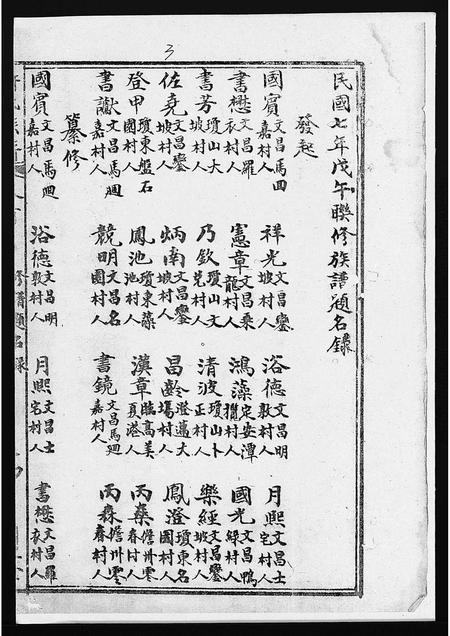 3
民國七年戊午聯修族譜題名錄
發起
國賓 文昌馬田嘉村人 祥光 文昌鑾坡村人 浴德 文昌明敦村人 月熙 文昌士宅村人
書懋 文昌羅衣村人 憲章 文昌乘龍村人 鴻藻 定安潭攬村人 國光 文昌鴨綠村人
書芳 瓊山大坡村人 乃欽 瓊山文兌村人 清波 瓊山卜正村人 樂經 文昌鑾坡村人
佐堯 文昌鑾坡村人 炳南 文昌鑾坡村人 昌齡 澄邁大塲村人 鳳澄 瓊東名園村人
登甲 瓊東盤石園村人 鳳池 瓊東藻池村人 漢章 臨高美夏港人 丙燊 儋州零春村人
書獻 文昌馬迴嘉村人 競明 文昌名園村人 書鏡 文昌馬迴嘉村人 丙森 儋州零春村人
纂修
國賓 文昌馬迴嘉村人 浴德 文昌明敦村人 月熙 文昌士宅村人 書懋 文昌羅衣村人
修譜題名錄